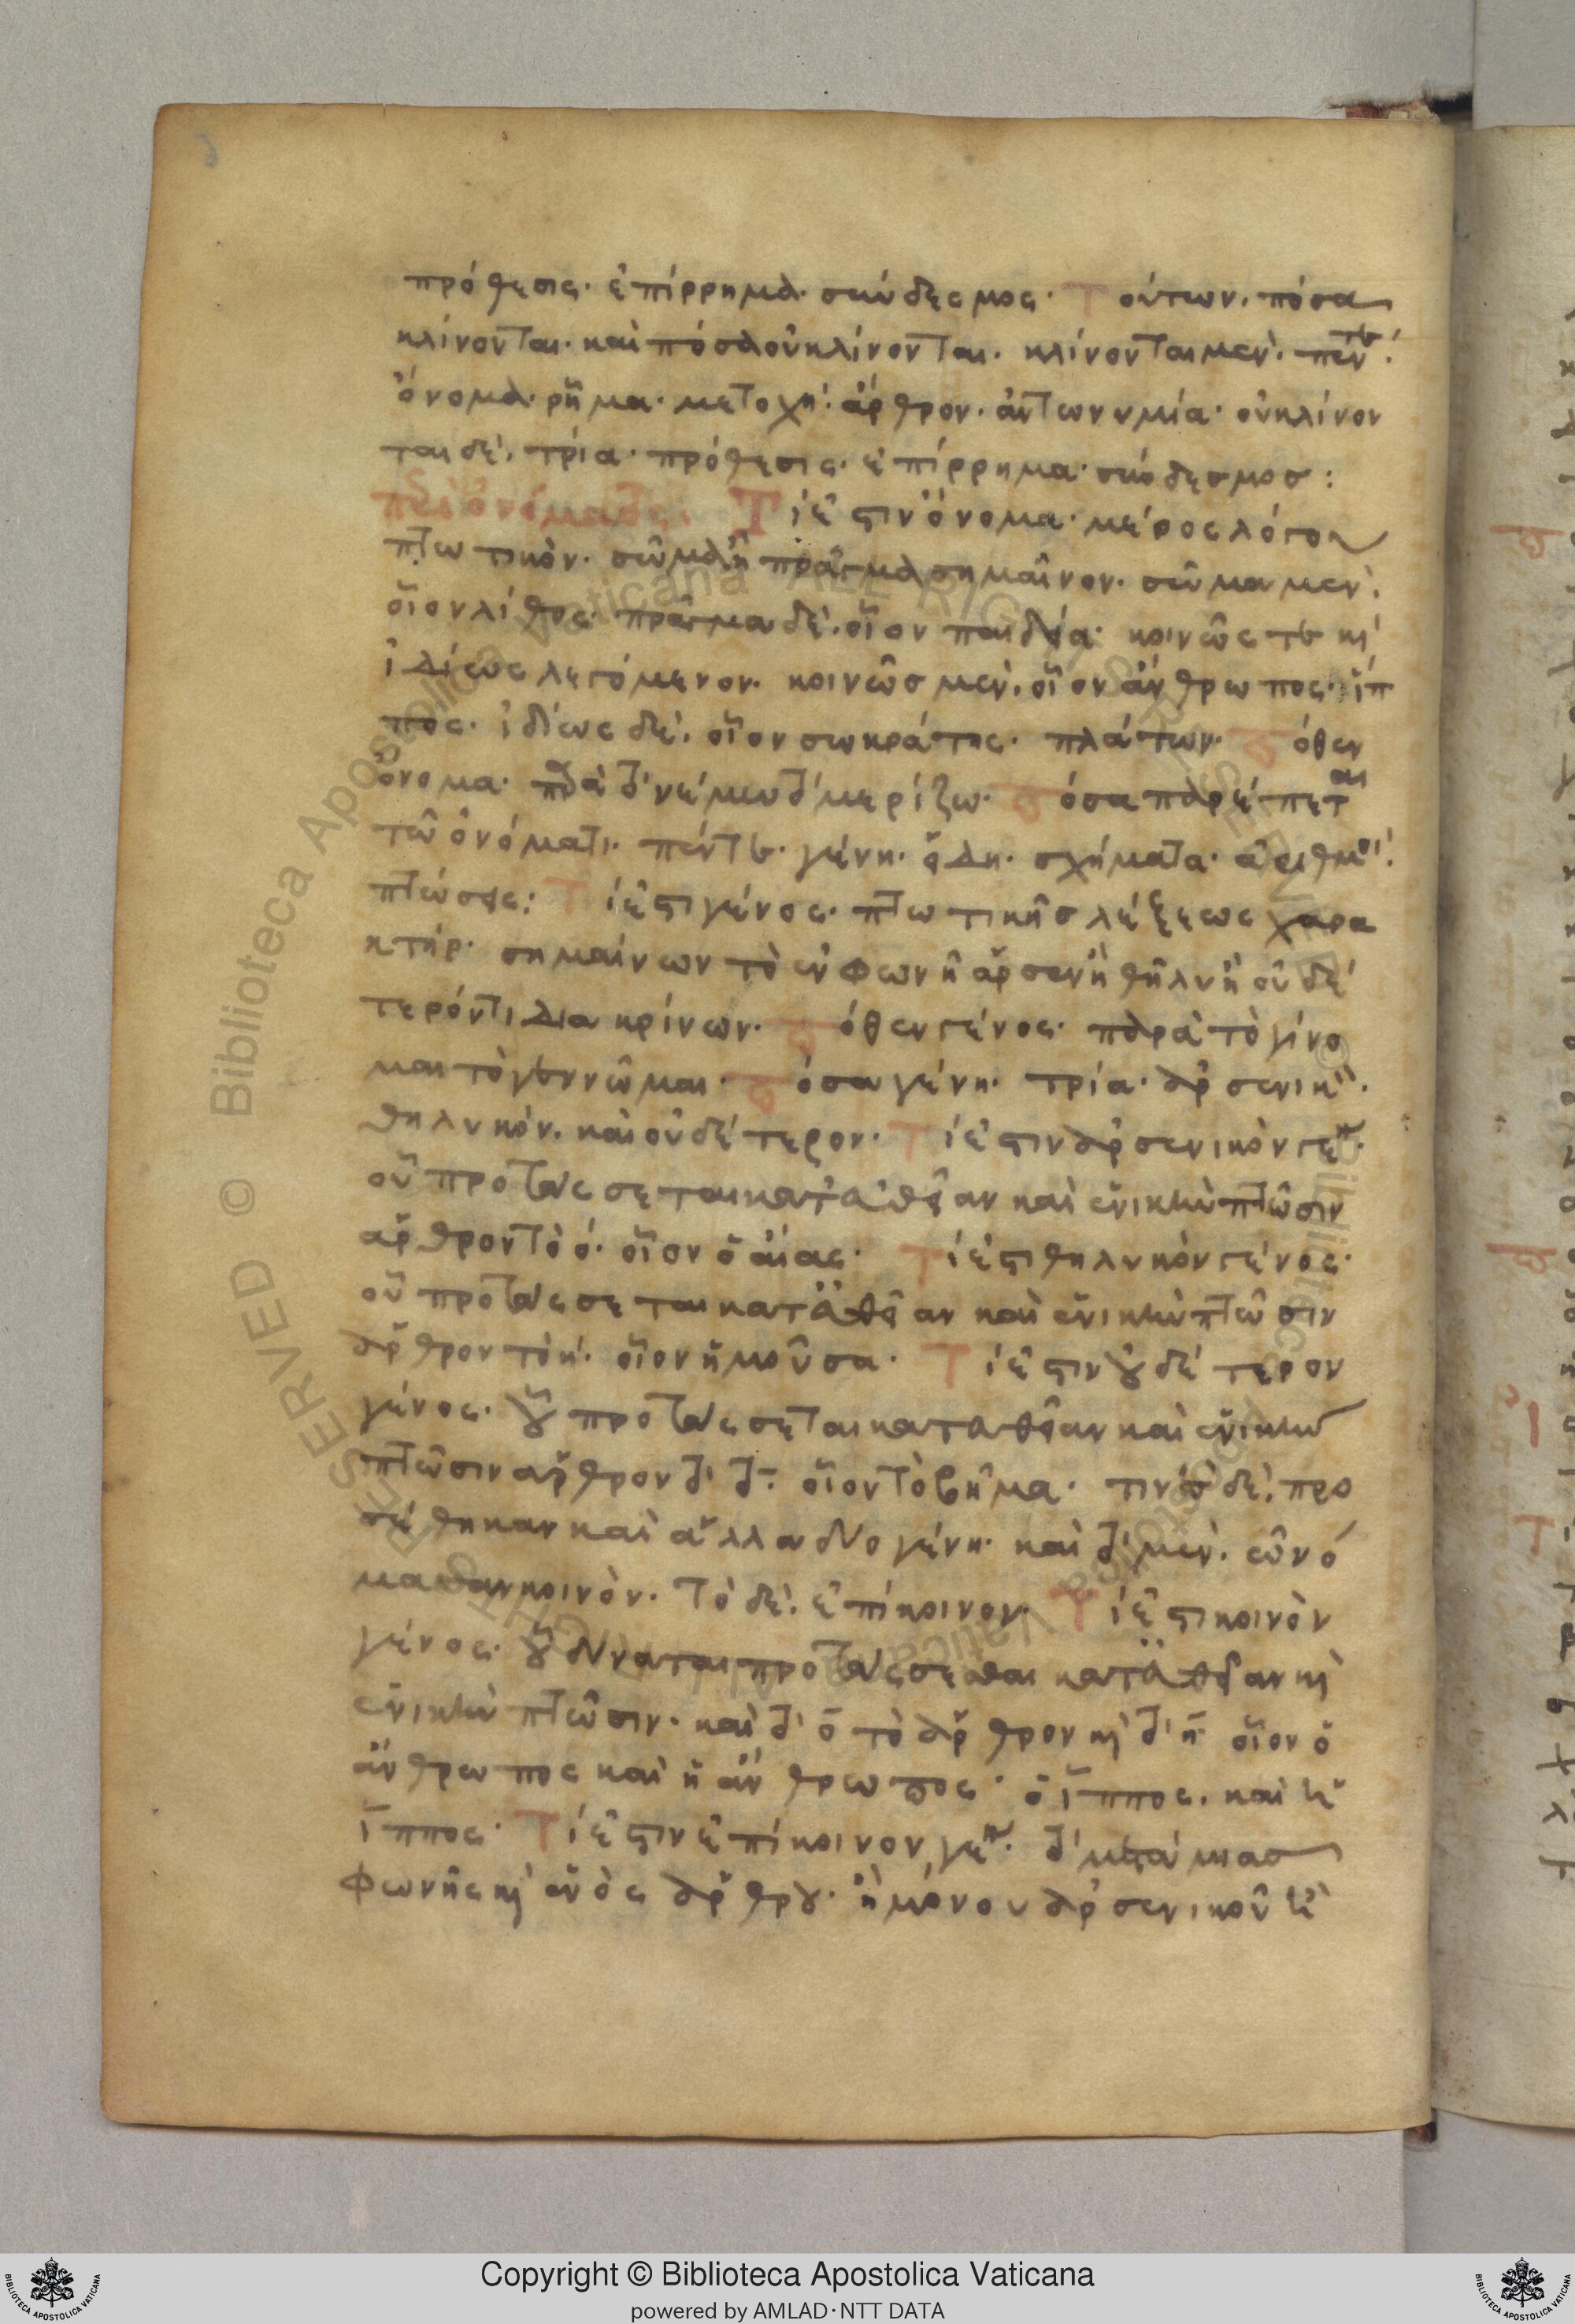 πρόθεσις· ἐπίρρημα· σύνδεσμος· Τούτων· πόσα
κλίνονται· καὶ πόσα οὐ κλίνονται· κλίνονται μὲν· πέντε·
ὄνομα· ῥῆμα· μετοχή· ἄρθρον· ἀντωνυμία· οὐ κλίνον
ται δὲ· τρία· πρόθεσις· ἐπίρρημα· σύνδεσμοσ:
περὶ ὀνόματος· Τί ἐστιν ὄνομα· μέρος λόγου
πτωτικὸν· σῶμα ἢ πρᾶγμα σημαῖνον· σῶμα μὲν·
οἷον λίθος· πρᾶγμα δὲ· οἷον παιδεία· κοινῶς τε κὶ
ἰδίως λεγόμενον· κοινῶσ μὲν· οἷον ἄνθρωπος· ἵπ
πος· ἰδίως δὲ· οἷον σωκράτης· πλάτων· Πόθεν
ὄνομα· παρὰ τὸ νέμω τὸ μερίζω· Πόσα παρέπεται
τῶ ὀνόματι· πέντε· γένη· εἴδη· σχήματα· ἀριθμοὶ·
πτώσεις: Τί ἐστι γένος· πτωτικῆσ λέξεως χαρα
κτήρ· σημαίνων τὸ ἐν φωνῆ ἄρσεν ἢ θῆλυ ἢ οὐδέ
τερόν τι διακρίνων· Πόθεν γένος· παρὰ τὸ γίνο
μαι τὸ γεννῶμαι· Πόσα γένη· τρία· ἀρσενικὸν·
θηλυκόν· καὶ οὐδέτερον· Τί ἐστιν ἀρσενικὸν γένος·
οὗ προτάσσεται κατ' εὐθεῖαν καὶ ἑνικὴν πτῶσιν
ἄρθρον τὸ ὁ· οἷον ὁ αἴας· Τί ἐστι θηλυκὸν γένος·
οὗ προτάσσεται κατ' εὐθεῖαν καὶ ἑνικὴν πτῶσιν
ἄρθρον τὸ ἡ· οἷον ἡ μοῦσα· Τί ἐστιν οὐδέτερον
γένος· οὗ προτάσσεται κατ' εὐθεῖαν καὶ ἑνικὴν
πτῶσιν ἄρθρον τὸ τό· οἷον τὸ βῆμα· τινὲσ δὲ· προ
σέθηκαν καὶ ἄλλα δύο γένη· καὶ τὸ μὲν· ὠνό
μασαν κοινὸν· Τὸ δὲ· ἐπίκοινον· Τί ἐστι κοινὸν
γένος· οὗ δύναται προτάσσεσθαι κατ' εὐθεῖαν κὶ
ἑνικὴν πτῶσιν· καὶ τὸ ὁ τὸ ἄρθρον κὶ τὸ ἡ· οἷον ὁ
ἄνθρωπος καὶ ἡ ἄνθρωπος· ὁ ἵππος· καὶ ἡ
ἵππος· Τί ἐστιν ἐπίκοινον γένος· τὸ μετὰ μιασ
φωνῆς κὶ ἑνὸς ἄρθρου· ἢ μόνου ἀρσενικοῦ ἢ
Copyright © Biblioteca Apostolica Vaticana
powered by AMLAD·NTT DATA